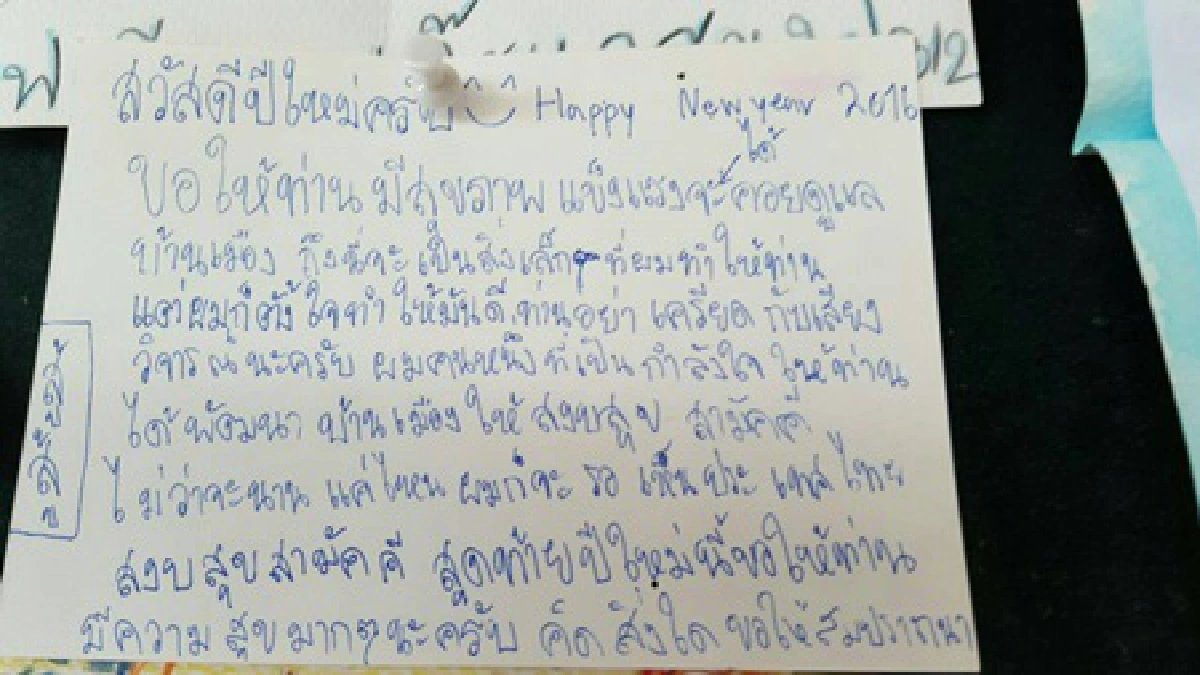 สวัสดีปีใหม่ครับ Happy New year 2016
ขอให้ท่าน มีสุขภาพ แข็งแรงจะได้คอยดูแล
บ้านเมือง ถึงนี่จะเป็นสิ่งเล็กๆ ที่ผมทำให้ท่าน
แต่ผมก็ตั้งใจทำให้มันดี ท่านอย่า เครียด กับเสียง
วิจารณ์นะครับ ผมคนหนึ่งที่เป็นกำลังใจ ให้ท่าน
ได้พัฒนา บ้านเมืองให้ สงบสุข สามัคคี
ไม่ว่าจะนาน แค่ไหน ผมก็จะ รอ เห็นประเทศไทย
สงบสุขสามัคคี สุดท้ายปีใหม่นี้ขอให้ท่าน
มีความสุขมากๆนะครับ คิดสิ่งใด ขอให้สมปรารถนา
สู้ๆ